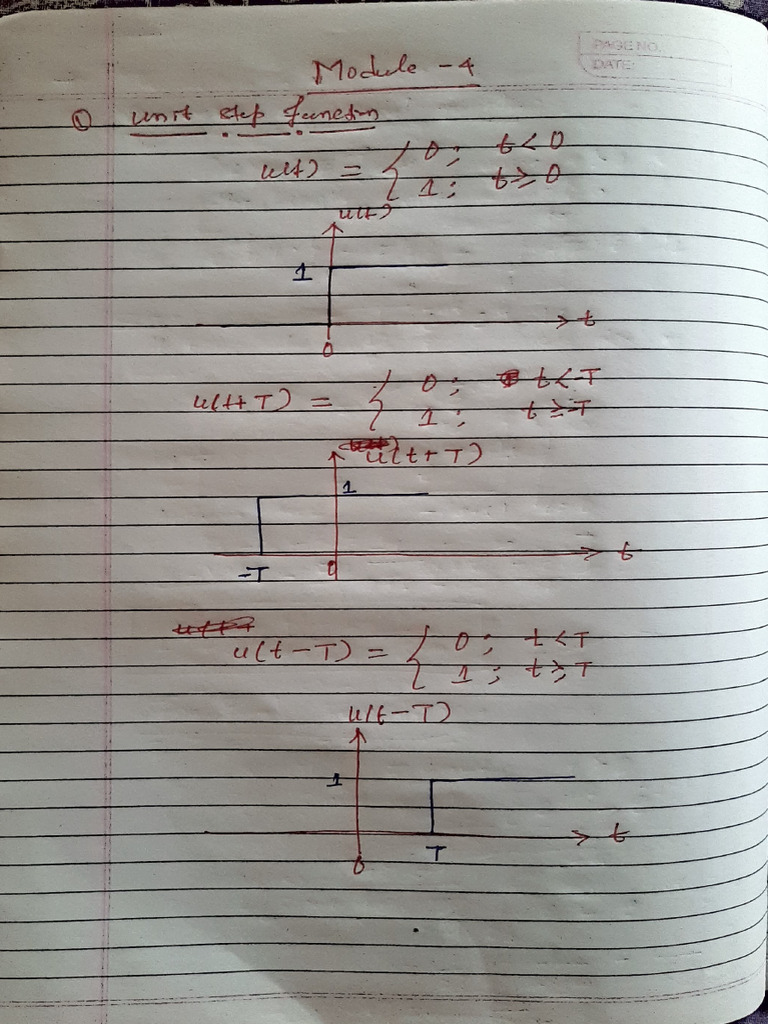 PAGE NO.
DATE:
Module - 4
① unit step function
u(t) = { 0 ; t < 0
1 ; t ≥ 0
u(t)
1
t
0
u(t+T) = { 0 ; t < -T
1 ; t ≥ -T
u(t+T)
1
t
-T 0
u(t-T) = { 0 ; t < T
1 ; t ≥ T
u(t-T)
1
t
0 T